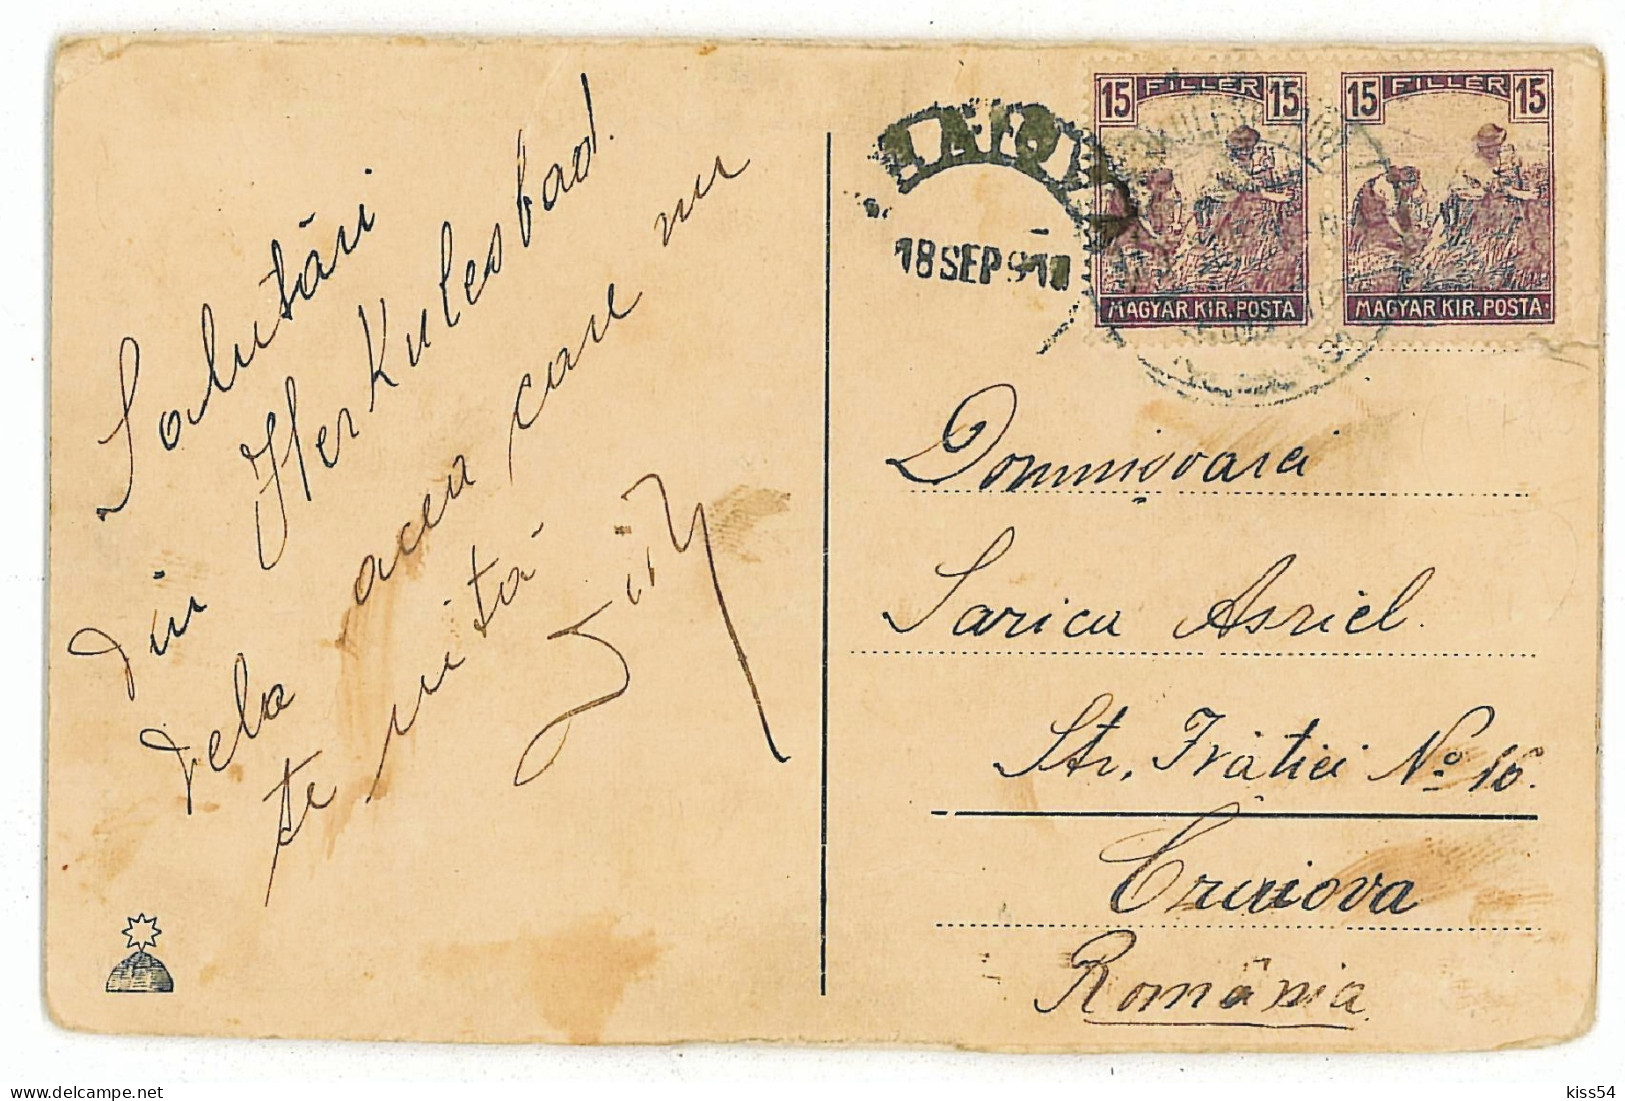 Salutări
din Herkulesbad.
dela aceea care nu
te uită
18 SEP 91
15 FILLER 15
MAGYAR KIR. POSTA
15 FILLER 15
MAGYAR KIR. POSTA
Domnișoarei
Sarica Asriel.
Str. Frației No 16.
Craiova
România
kiss54